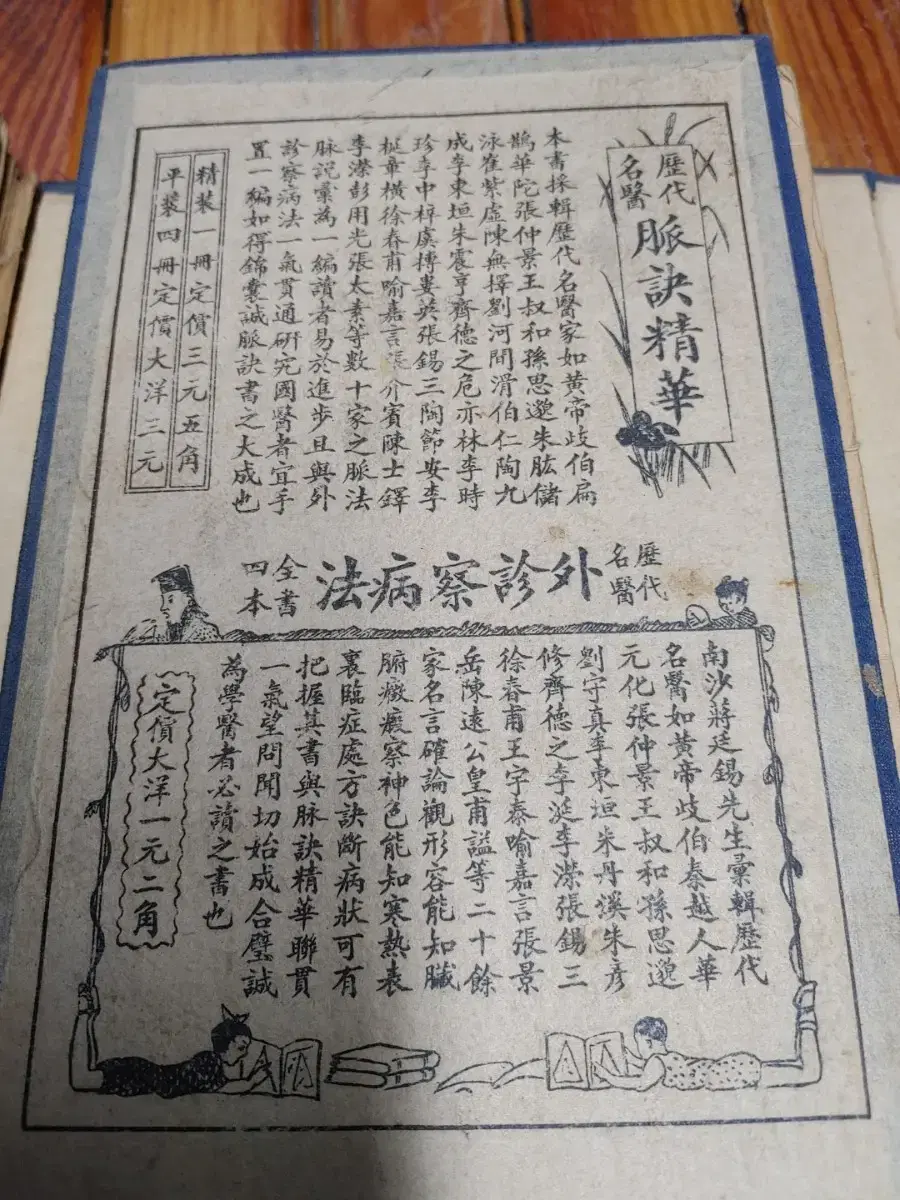 歷代
名醫
脈訣精華
本書採輯歷代名醫家如黃帝歧伯扁
鵲華陀張仲景王叔和孫思邈朱肱儲
泳崔紫虛陳無擇劉河間滑伯仁陶九
成李東垣朱震亨齊德之危亦林李時
珍李中梓虞摶婁英張錫三陶節安李
梴章橫徐春甫喻嘉言張介賓陳士鐸
李濴彭用光張太素等數十家之脈法
脉說彙為一編讀者易於進步且與外
診察病法一氣貫通研究國醫者宜手
置一編如得錦囊誠脈訣書之大成也
精裝一冊定價三元五角
平裝四冊定價大洋三元
歷代
名醫
外診察病法
全書
四本
南沙蔣廷錫先生彙輯歷代
名醫如黃帝歧伯秦越人華
元化張仲景王叔和孫思邈
劉守真李東垣朱丹溪朱彥
修齊德之李梃李濴張錫三
徐春甫王宇泰喻嘉言張景
岳陳遠公皇甫謐等二十餘
家名言確論觀形容能知臟
腑癥癥察神色能知寒熱表
裏臨症處方訣斷病狀可有
把握其書與脉訣精華聯貫
一氣望問聞切始成合璧誠
為學醫者必讀之書也
定價大洋一元二角